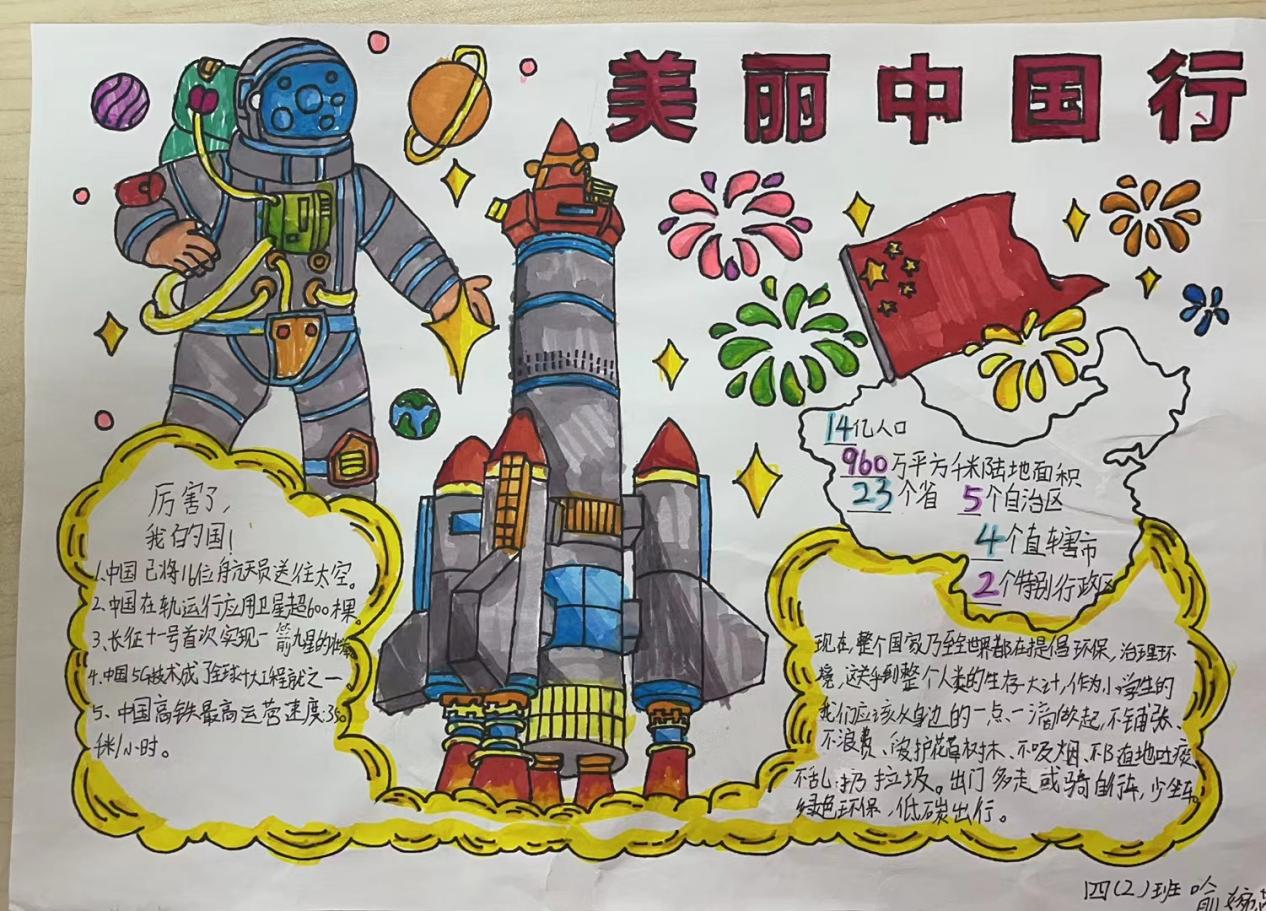 美丽中国行
14亿人口
960万平方千米陆地面积
23个省 5个自治区
4个直辖市
2个特别行政区
厉害了,
我的国!
1.中国已将16位航天员送往太空。
2.中国在轨运行应用卫星超600棵。
3、长征十一号首次实现一箭九星的
4.中国5G技术成了全球十大工程就之一
5、中国高铁最高运营速度:350
千米/小时。
现在,整个国家乃至全世界都在提倡环保,治理环
境,这关乎到整个人类的生存大计,作为小学生的
我们应该从身边的一点、一滴做起,不铺张、
不浪费、爱护花草树木、不吸烟、不随地吐痰、
不乱扔垃圾。出门多走或骑自行车,少坐车。
绿色环保,低碳出行。
四(2)班 喻婉